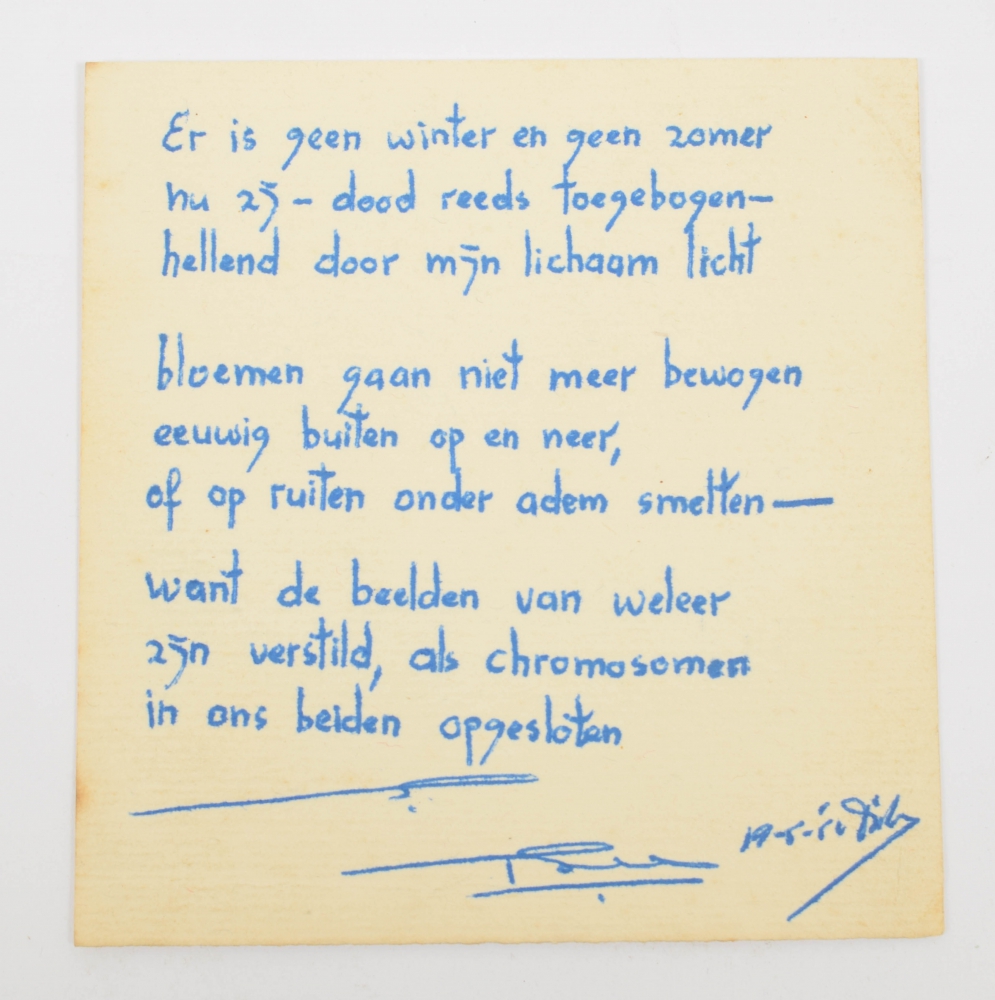 Er is geen winter en geen zomer
nu zij – dood reeds toegebogen–
hellend door mijn lichaam licht
bloemen gaan niet meer bewogen
eeuwig buiten op en neer,
of op ruiten onder adem smelten—
want de beelden van weleer
zijn verstild, als chromosomen
in ons beiden opgesloten